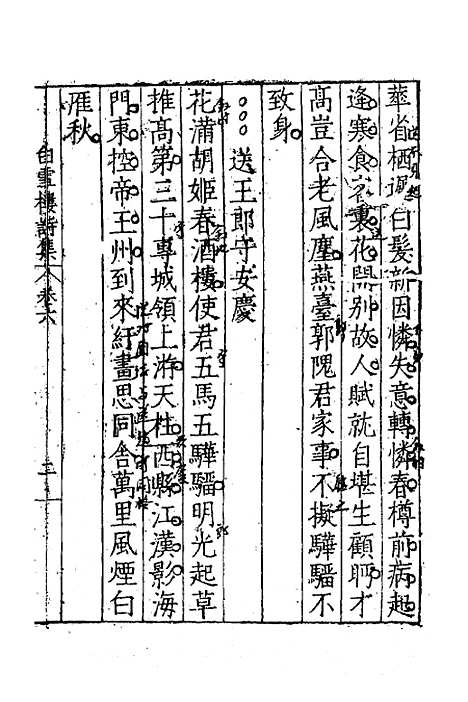 華省栖遲白髮新因憐失意轉憐春樽前病起
逢寒食客裏花開別故人賦就自堪生顧眄才
高豈合老風塵燕臺郭隗君家事不擬驊騮不
致身
送王郎守安慶
花滿胡姬春酒樓使君五馬五驊騮明光起草
推高第三十專城領上游天柱西縣江漢影海
門東控帝王州到來紆畫思同舍萬里風煙白
雁秋
白雪樓詩集 卷六